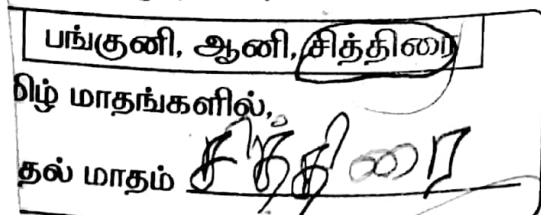 பங்குனி, ஆனி, சித்திரை
மிழ் மாதங்களில்,
தல் மாதம் சித்திரை